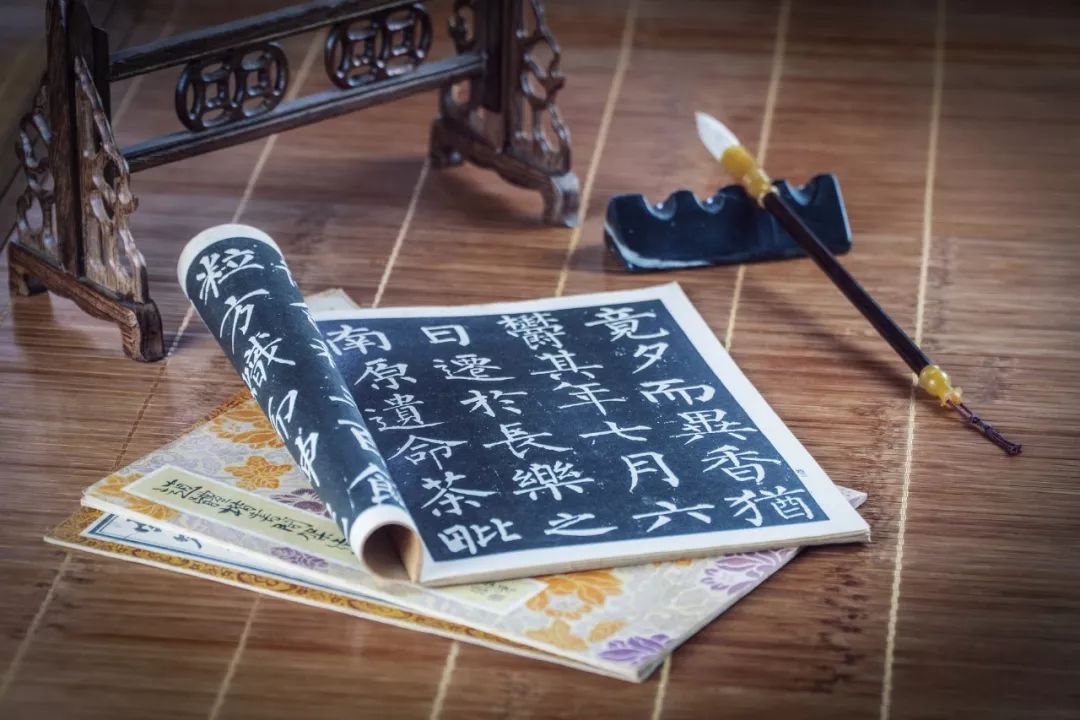 竟夕而異香猶
欝其年七月六
日遷於長樂之
南原遺命茶毗
粒方熾